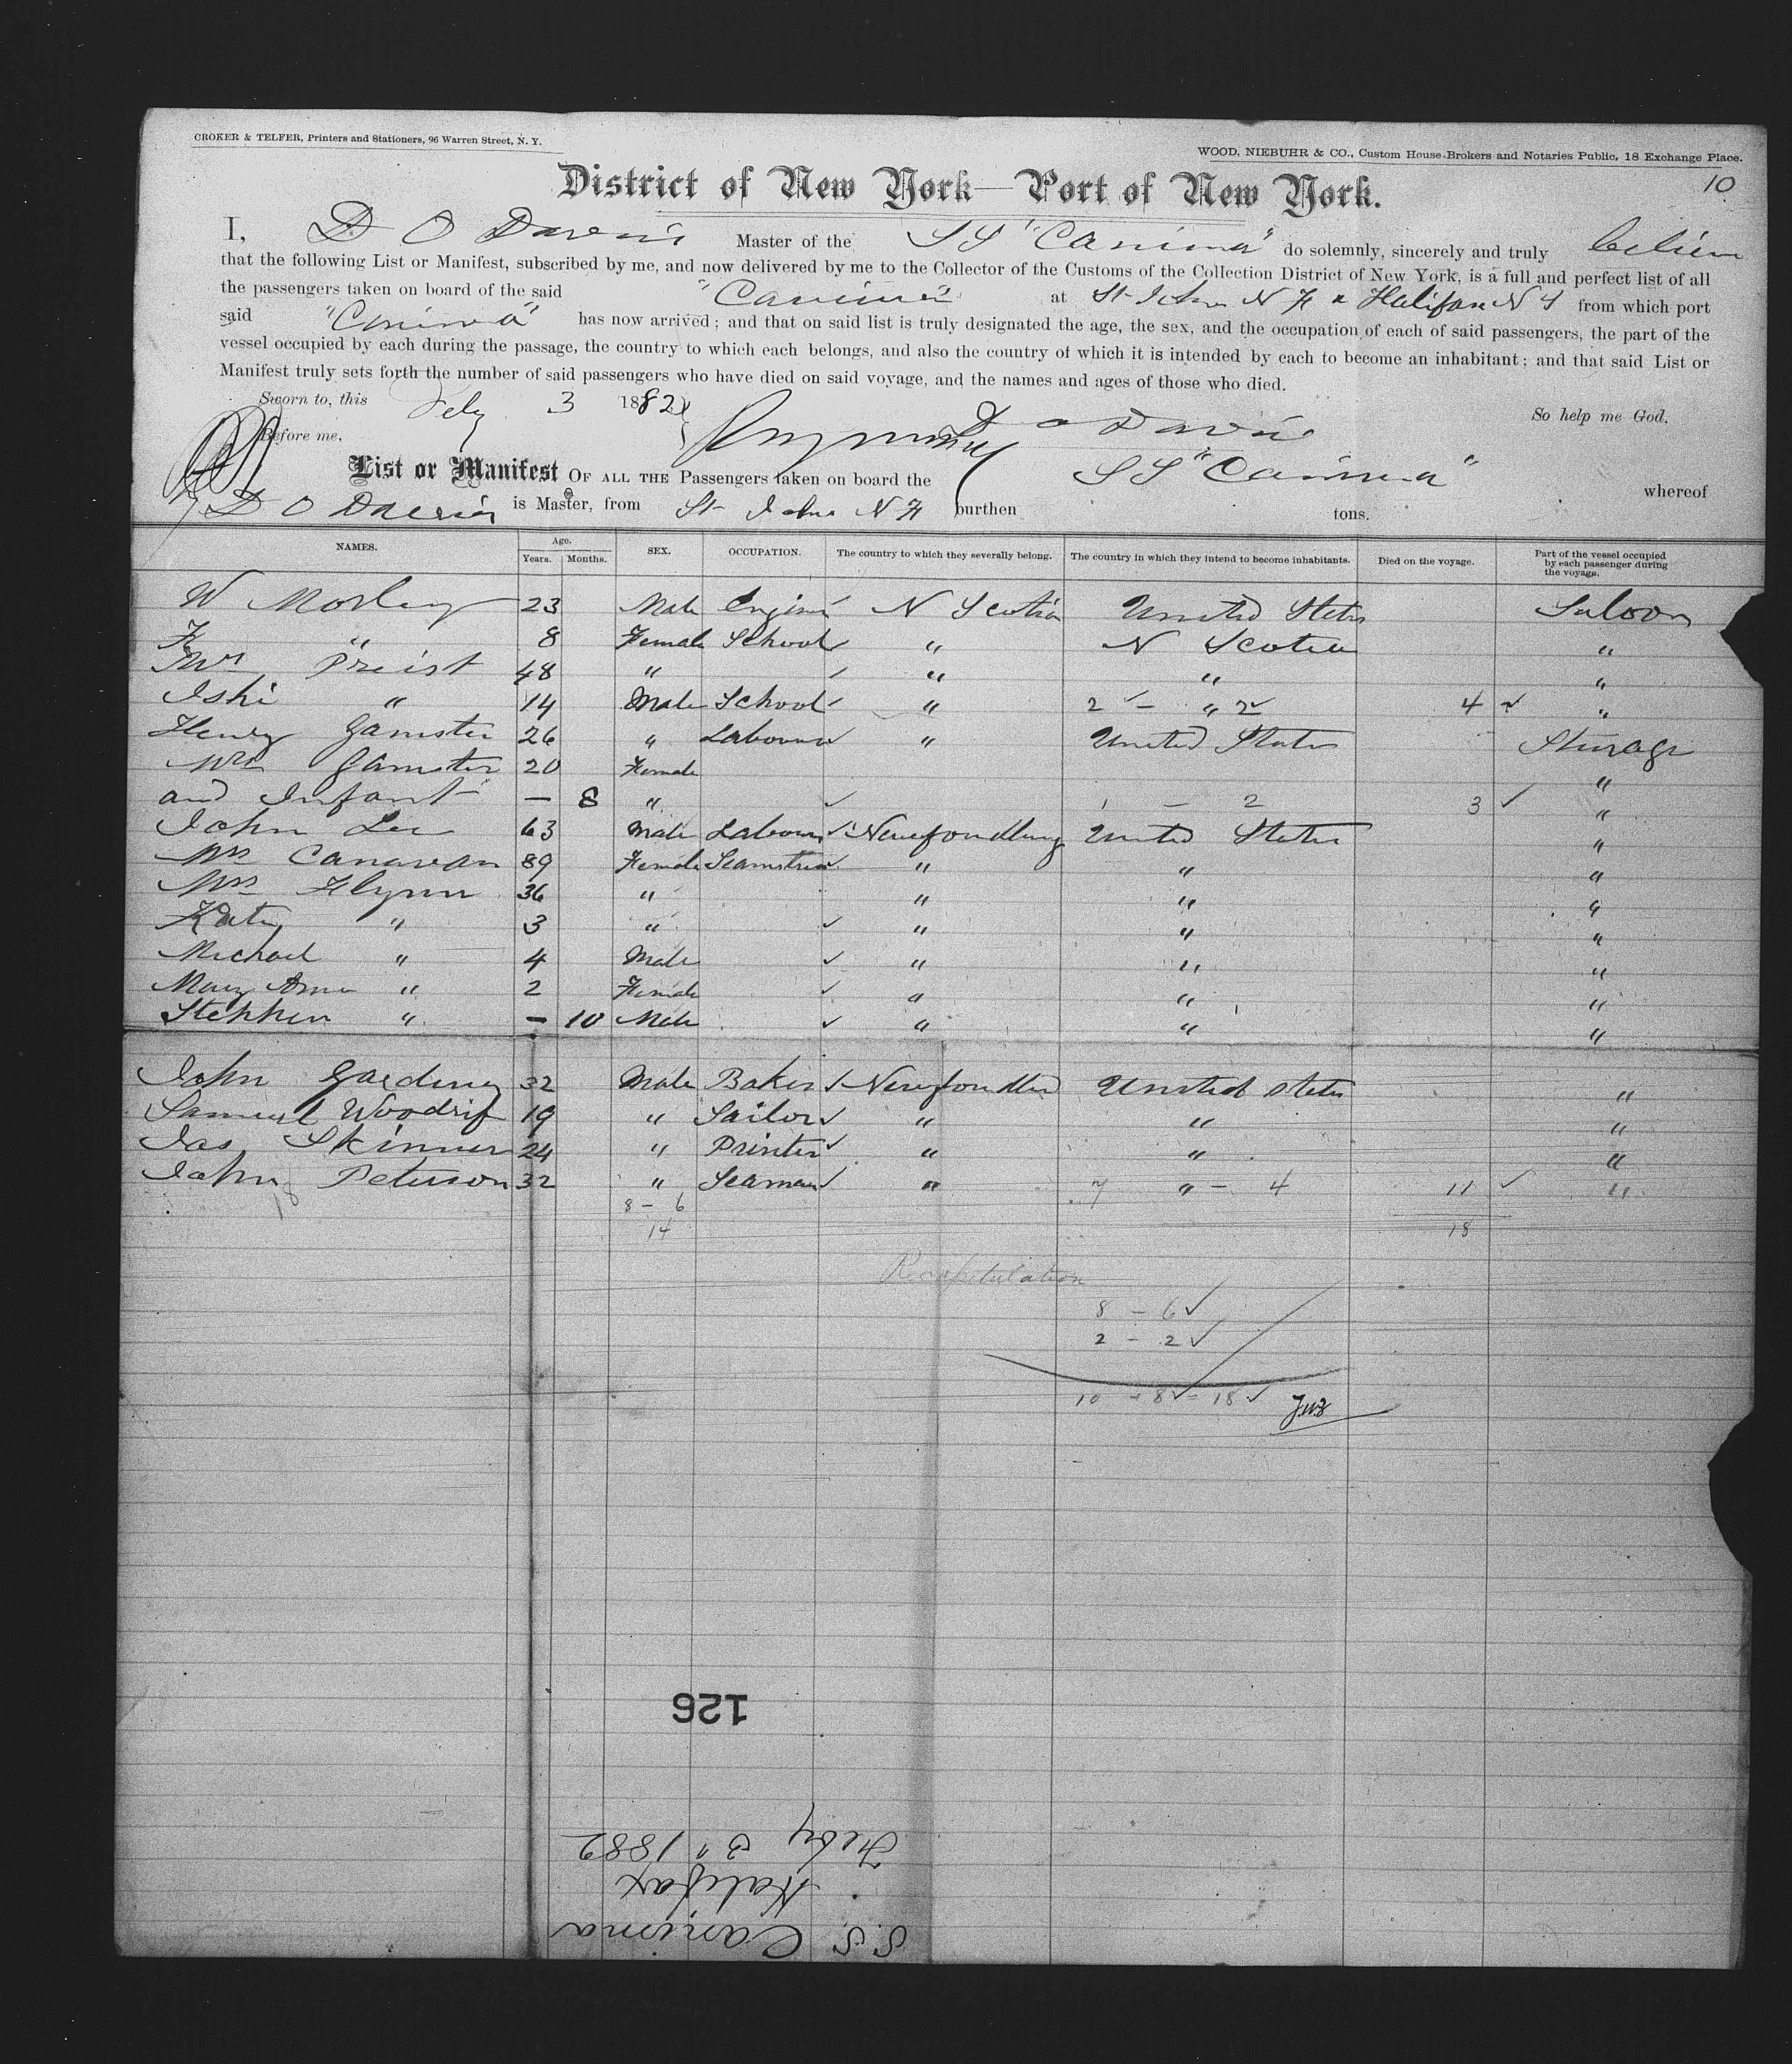 CROKER & TELFER, Printers and Stationers, 96 Warren Street, N. Y.
WOOD, NIEBUHR & CO., Custom House Brokers and Notaries Public, 18 Exchange Place.
10
District of New York—Port of New York.
I, D O Davies Master of the SS "Canima" do solemnly, sincerely and truly
that the following List or Manifest, subscribed by me, and now delivered by me to the Collector of the Customs of the Collection District of New York, is a full and perfect list of all
the passengers taken on board of the said "Canima" at St Johns N F & Halifax N S from which port
said "Canima" has now arrived; and that on said list is truly designated the age, the sex, and the occupation of each of said passengers, the part of the
vessel occupied by each during the passage, the country to which each belongs, and also the country of which it is intended by each to become an inhabitant; and that said List or
Manifest truly sets forth the number of said passengers who have died on said voyage, and the names and ages of those who died.
Sworn to, this Feby 3 1882 So help me God.
Before me, D O Davies
List or Manifest OF ALL THE Passengers taken on board the SS "Canima" whereof
D O Davies is Master, from St Johns N F burthen tons.
NAMES. Age. Years. Months. SEX. OCCUPATION. The country to which they severally belong. The country in which they intend to become inhabitants. Died on the voyage. Part of the vessel occupied by each passenger during the voyage.
W Morley 23 Male Engin N Scotia United States Saloon
F " 8 Female School " N Scotia "
Mrs Preist 48 " " " "
" 14 Male School " 2 - " 2 4 "
Henry Gamster 26 " Labourer " United States Sturage
Mrs Gamster 20 Female "
and Infant — 8 " 1 - 2 3 "
John Lee 63 Male Labourer Newfoundland United States "
Mrs Canavan 89 Female Seamstress " " "
Mrs Flynn 36 " " " "
Katy " 3 " " " "
Michael " 4 Male " " "
Mary Ann " 2 Female " " "
Stephen " — 10 Male " " "
John Gardiney 32 Male Baker Newfoundld United States "
Samuel Woodrif 19 " Sailor " " "
Jas Skinner 24 " Printer " " "
John Peterson 32 " Seaman " 7 " - 4 11 "
18 8 - 6
14 18
Recapitulation
8 - 6
2 - 2
10 - 8 - 18
126
S.S. Canima
Halifax
Feby 3" 1882